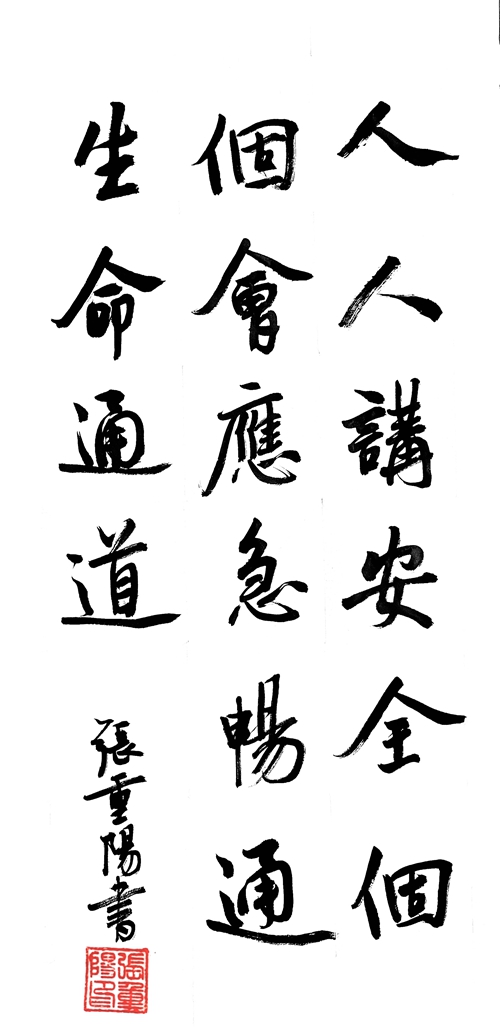 人人講安全個
個會應急暢通
生命通道
張重陽書
張重陽印